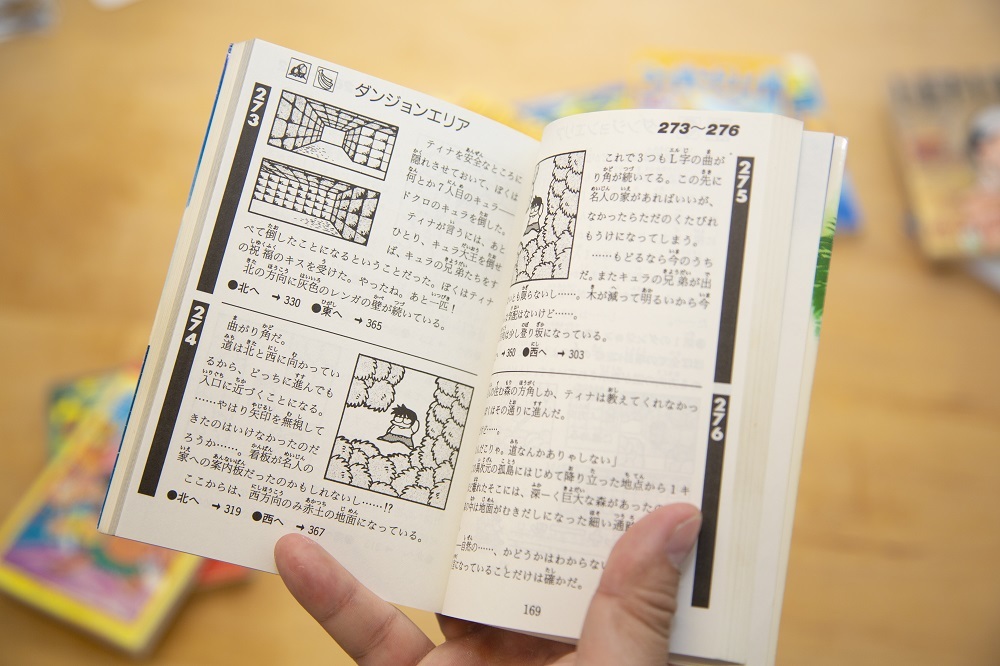 ダンジョンエリア
273
ティナを安全なところに
隠れさせておいて、ぼくは
何とか7人目のキュラ——
ドクロのキュラを倒した。
ティナが言うには、あと
ひとり、キュラ大王を倒せ
ば、キュラの兄弟たちをす
べて倒したことになるということだった。ぼくはティナ
の祝福のキスを受けた。やったね。あと一匹！
北の方向に灰色のレンガの壁が続いている。
●北へ →330 ●東へ →365
274
曲がり角だ。
道は北と西に向かってい
るから、どっちに進んでも
入口に近づくことになる。
……やはり矢印を無視して
きたのはいけなかったのだ
ろうか……。看板が名人の
家への案内板だったのかもしれないし……!?
ここからは、西方向のみ赤土の地面になっている。
●北へ →319 ●西へ →367
273〜276
275
これで3つもL字の曲が
り角が続いてる。この先に
名人の家があればいいが、
なかったらただのくたびれ
もうけになってしまう。
……もどるなら今のうち
だ。またキュラの兄弟が出
とも限らないし……。木が減って明るいから今
気配はないけど……。
は少し登り坂になっている。
→360 ●西へ →303
276
住む森の方角しか、ティナは教えてくれなかっ
はその通りに進んだ。
ど……。
だこりゃ。道なんかありゃしない」
次元の孤島にはじめて降り立った地点から1キ
離れたそこには、深〜く巨大な森があったの
中は地面がむきだしになった細い通
自然の……、かどうかはわからな
になっていることだけは確かだ。
169